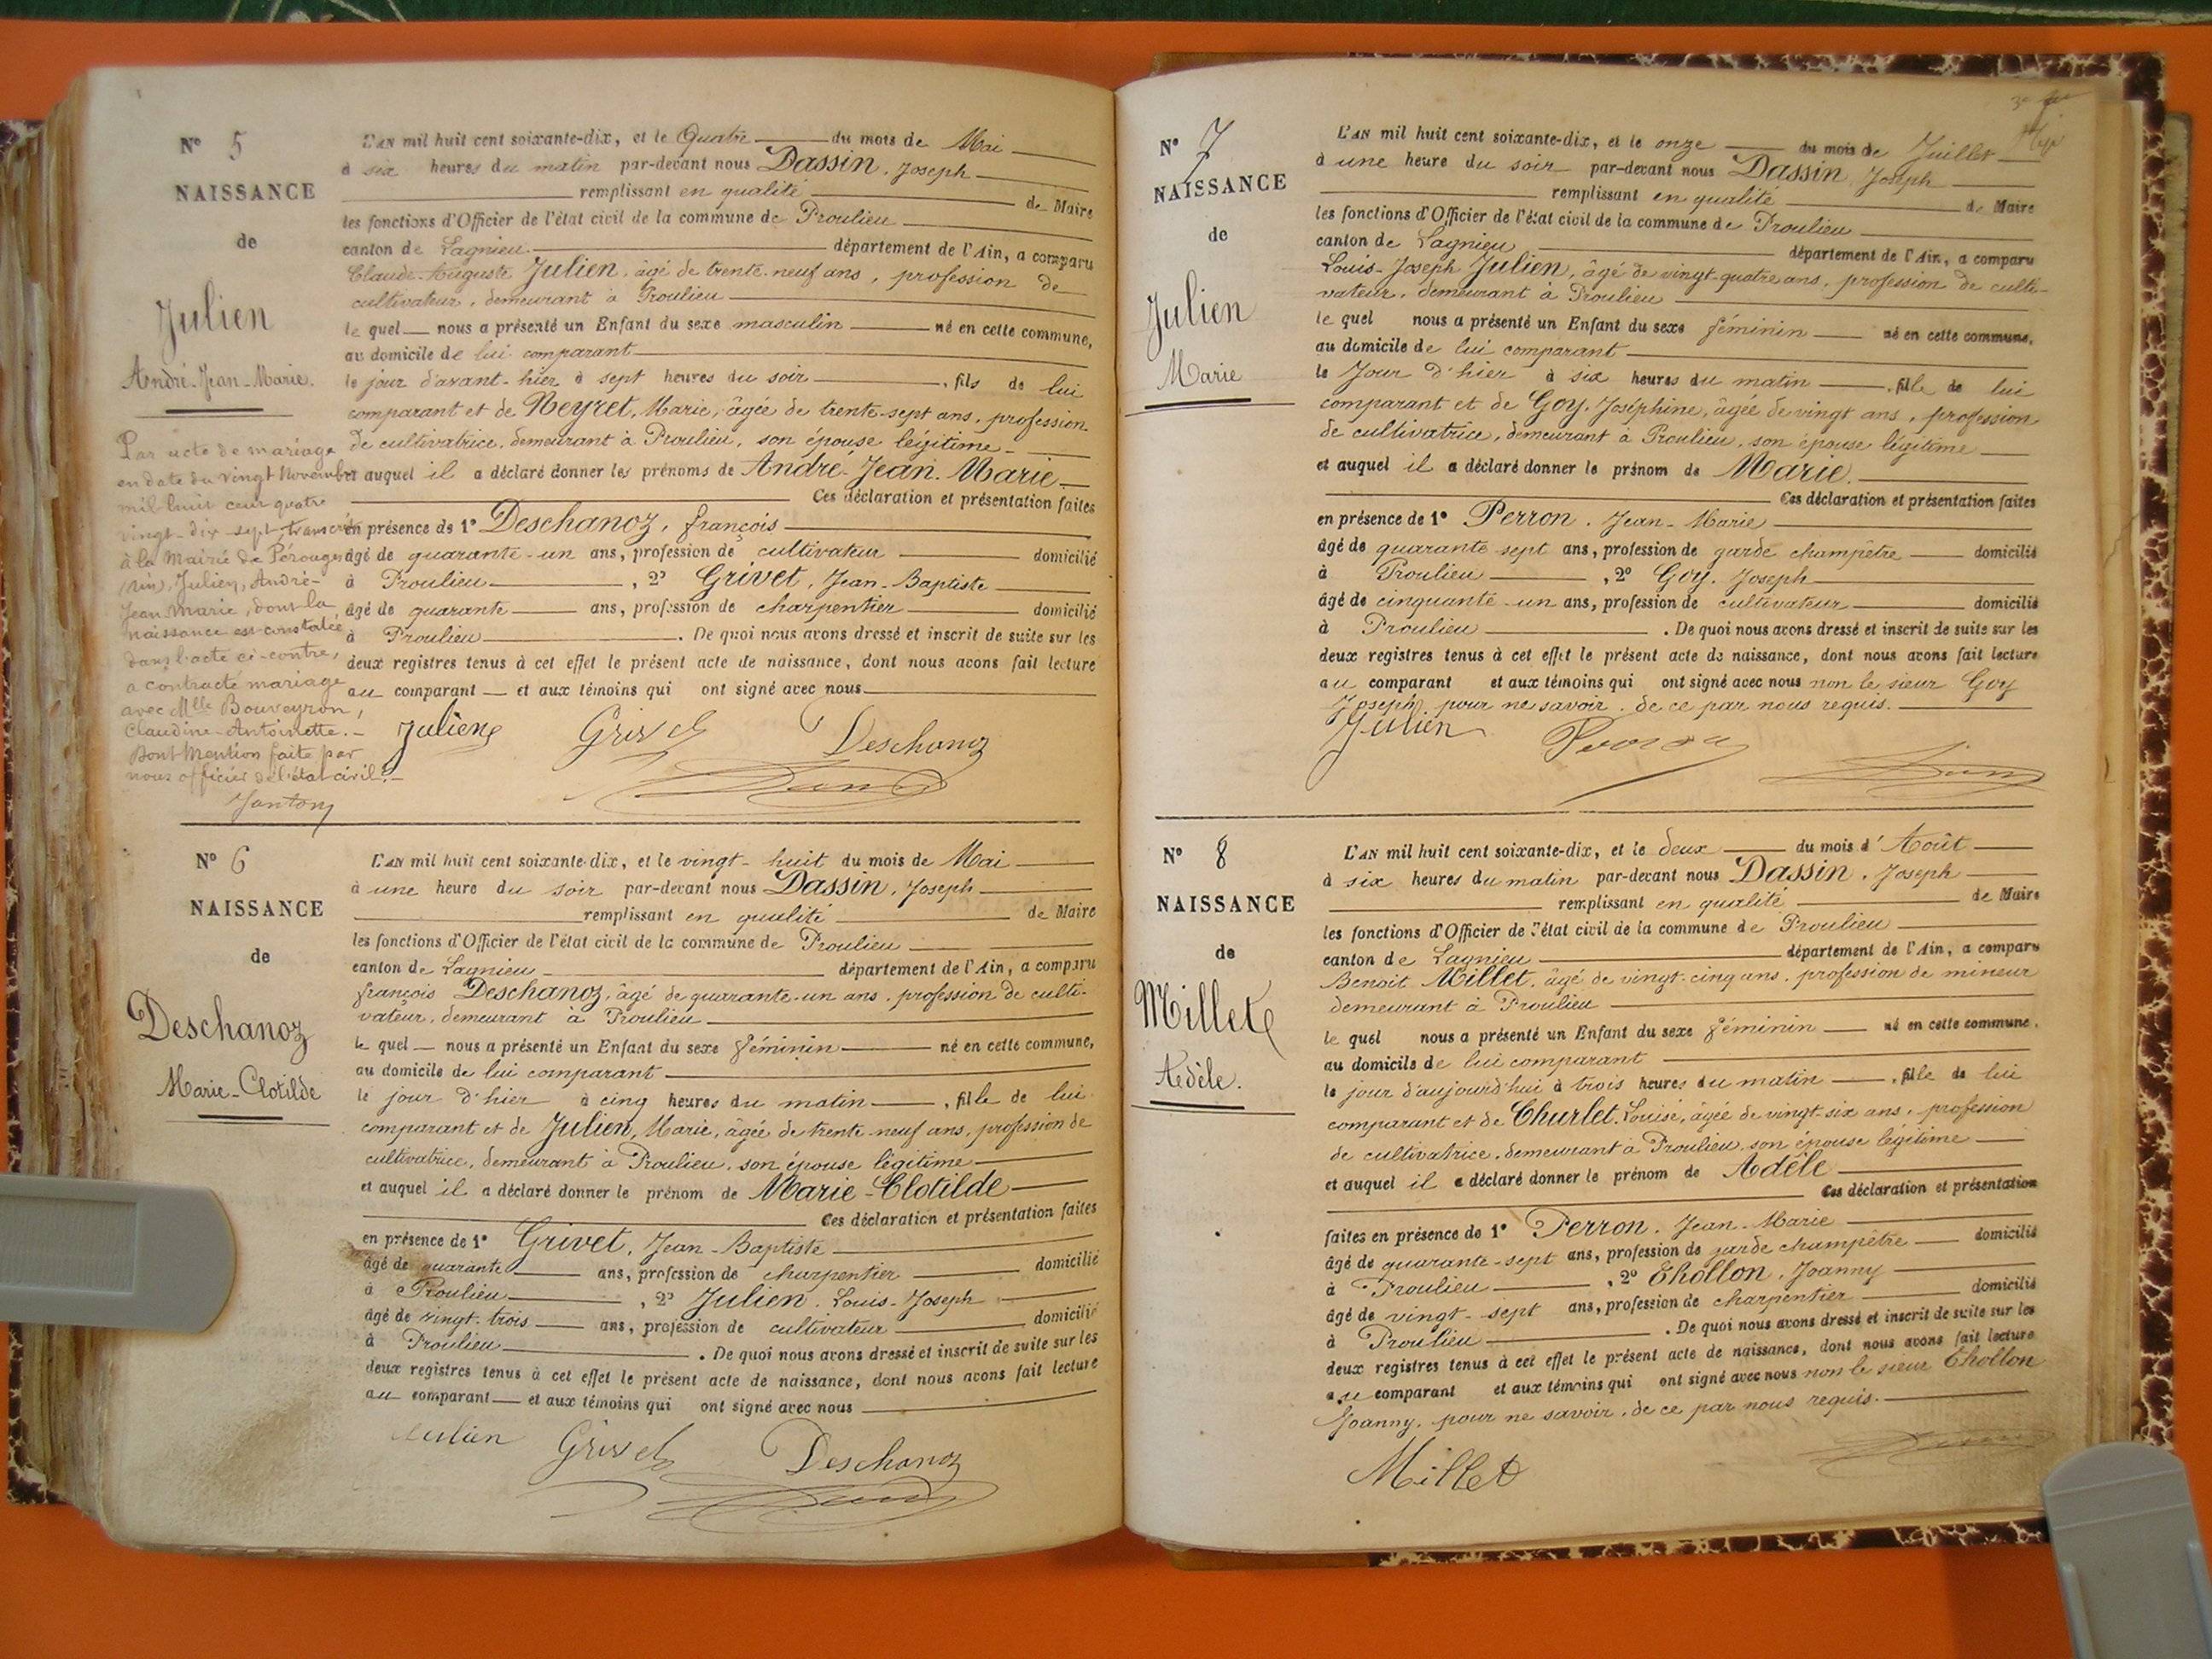 N° 5
NAISSANCE
de
Julien
André-Jean-Marie.
Par acte de mariage
en date du vingt Novembre
mil huit cent quatre
vingt-dix-sept, transcrit
à la Mairie de Pérouges
(Ain), Julien, André-
Jean-Marie, dont la
naissance est constatée
dans l'acte ci-contre,
a contracté mariage
avec Mlle Bouveyron,
Claudine-Antoinette.-
Dont Mention faite par
nous officier de l'état civil.-
L'AN mil huit cent soixante-dix, et le Quatre du mois de Mai
à six heures du matin par-devant nous Dassin, Joseph
remplissant en qualité de Maire
les fonctions d'Officier de l'état civil de la commune de Proulieu
canton de Lagnieu département de l'Ain, a comparu
Claude-Auguste Julien, âgé de trente-neuf ans, profession de
cultivateur, demeurant à Proulieu
le quel nous a présenté un Enfant du sexe masculin né en cette commune,
au domicile de lui comparant
le jour d'avant-hier à sept heures du soir, fils de lui
comparant et de Neyret, Marie, âgée de trente-sept ans, profession
de cultivatrice, demeurant à Proulieu, son épouse légitime
et auquel il a déclaré donner les prénoms de André-Jean-Marie
Ces déclaration et présentation faites
en présence de 1° Deschanoz, françois
âgé de quarante-un ans, profession de cultivateur domicilié
à Proulieu, 2° Grivet, Jean-Baptiste
âgé de quarante ans, profession de charpentier domicilié
à Proulieu. De quoi nous avons dressé et inscrit de suite sur les
deux registres tenus à cet effet le présent acte de naissance, dont nous avons fait lecture
au comparant et aux témoins qui ont signé avec nous
Julien Grivet Deschanoz
N° 6
NAISSANCE
de
Deschanoz
Marie-Clotilde
L'AN mil huit cent soixante-dix, et le vingt-huit du mois de Mai
à une heure du soir par-devant nous Dassin, Joseph
remplissant en qualité de Maire
les fonctions d'Officier de l'état civil de la commune de Proulieu
canton de Lagnieu département de l'Ain, a comparu
françois Deschanoz, âgé de quarante-un ans, profession de culti-
vateur, demeurant à Proulieu
le quel nous a présenté un Enfant du sexe féminin né en cette commune,
au domicile de lui comparant
le jour d'hier à cinq heures du matin, fille de lui
comparant et de Julien, Marie, âgée de trente-neuf ans, profession de
cultivatrice, demeurant à Proulieu, son épouse légitime
et auquel il a déclaré donner le prénom de Marie-Clotilde
Ces déclaration et présentation faites
en présence de 1° Grivet, Jean-Baptiste
âgé de quarante ans, profession de charpentier domicilié
à Proulieu, 2° Julien, Louis-Joseph
âgé de vingt-trois ans, profession de cultivateur domicilié
à Proulieu. De quoi nous avons dressé et inscrit de suite sur les
deux registres tenus à cet effet le présent acte de naissance, dont nous avons fait lecture
au comparant et aux témoins qui ont signé avec nous
Julien Grivet Deschanoz
N° 7
NAISSANCE
de
Julien
Marie
L'AN mil huit cent soixante-dix, et le onze du mois de Juillet
à une heure du soir par-devant nous Dassin, Joseph
remplissant en qualité de Maire
les fonctions d'Officier de l'état civil de la commune de Proulieu
canton de Lagnieu département de l'Ain, a comparu
Louis-Joseph Julien, âgé de vingt-quatre ans, profession de culti-
vateur, demeurant à Proulieu
le quel nous a présenté un Enfant du sexe féminin né en cette commune,
au domicile de lui comparant
le Jour d'hier à six heures du matin, fille de lui
comparant et de Goy, Joséphine, âgée de vingt ans, profession
de cultivatrice, demeurant à Proulieu, son épouse légitime
et auquel il a déclaré donner le prénom de Marie.
Ces déclaration et présentation faites
en présence de 1° Perron, Jean-Marie
âgé de quarante sept ans, profession de garde champêtre domicilié
à Proulieu, 2° Goy, Joseph
âgé de cinquante-un ans, profession de cultivateur domicilié
à Proulieu. De quoi nous avons dressé et inscrit de suite sur les
deux registres tenus à cet effet le présent acte de naissance, dont nous avons fait lecture
au comparant et aux témoins qui ont signé avec nous non le sieur Goy
Joseph, pour ne savoir, de ce par nous requis.
Julien Perron
N° 8
NAISSANCE
de
Millet
Adèle.
L'AN mil huit cent soixante-dix, et le deux du mois d'Août
à six heures du matin par-devant nous Dassin, Joseph
remplissant en qualité de Maire
les fonctions d'Officier de l'état civil de la commune de Proulieu
canton de Lagnieu département de l'Ain, a comparu
Benoit Millet, âgé de vingt-cinq ans, profession de mineur
demeurant à Proulieu
le quel nous a présenté un Enfant du sexe féminin né en cette commune,
au domicile de lui comparant
le jour d'aujourd'hui à trois heures du matin, fille de lui
comparant et de Churlet, Louise, âgée de vingt-six ans, profession
de cultivatrice, demeurant à Proulieu, son épouse légitime
et auquel il a déclaré donner le prénom de Adèle
Ces déclaration et présentation
faites en présence de 1° Perron, Jean-Marie
âgé de quarante-sept ans, profession de garde champêtre domicilié
à Proulieu, 2° Chollon, Joanny
âgé de vingt-sept ans, profession de charpentier domicilié
à Proulieu. De quoi nous avons dressé et inscrit de suite sur les
deux registres tenus à cet effet le présent acte de naissance, dont nous avons fait lecture
au comparant et aux témoins qui ont signé avec nous non le sieur Chollon
Joanny, pour ne savoir, de ce par nous requis.
Millet